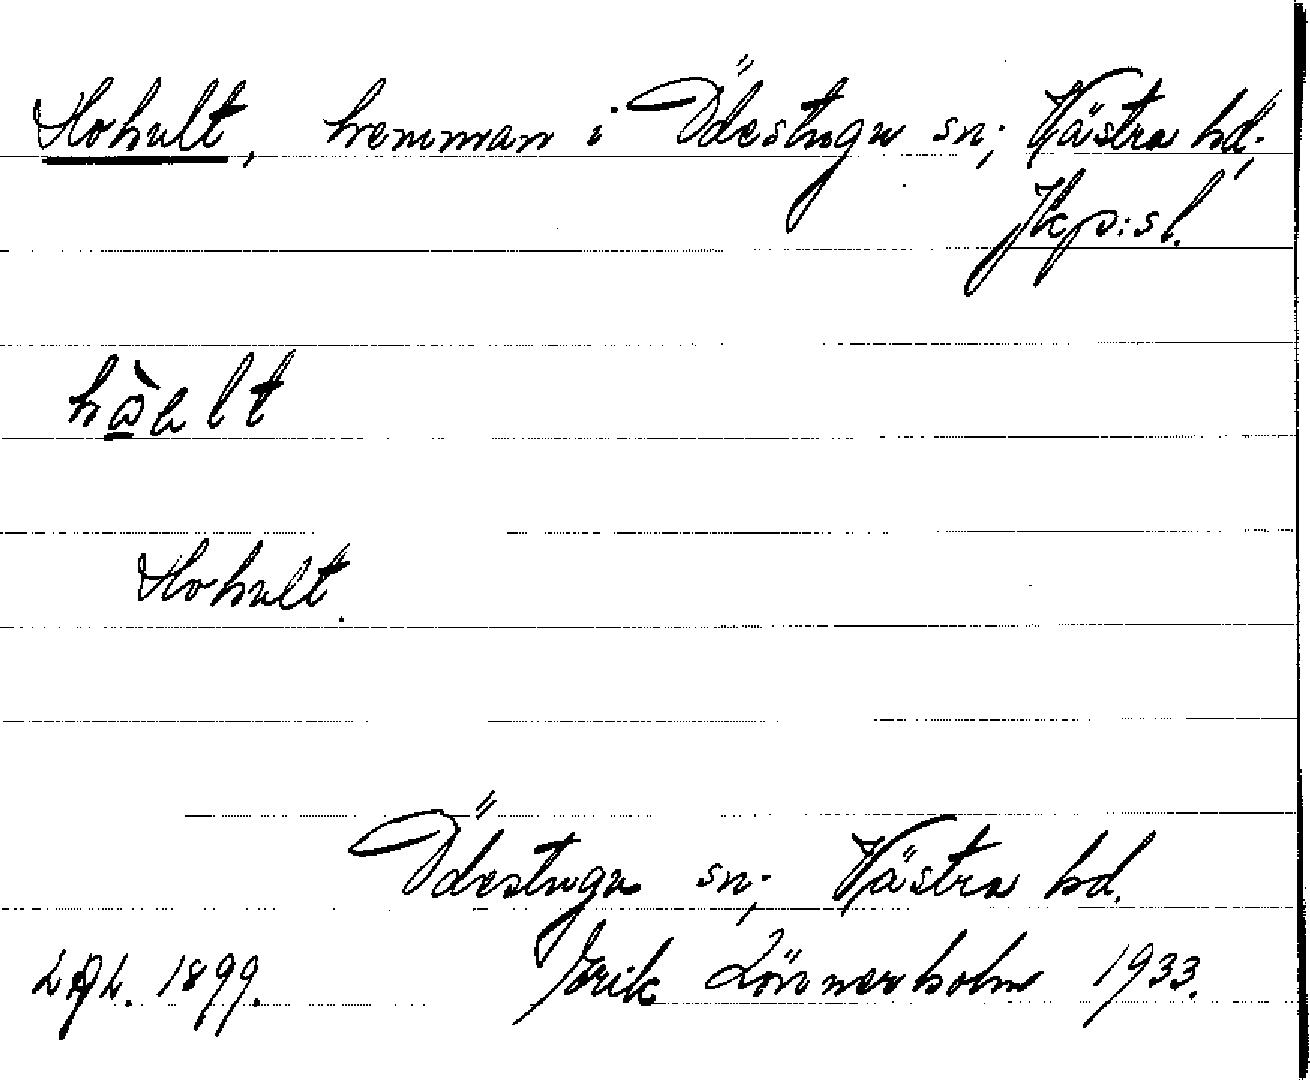 Hohult, hemman i Ödestugu sn; Västra hd;
Jkp:s l.
Hohult.
Ödestugu sn; Västra hd.
1899. Erik Lönnerholm 1933.